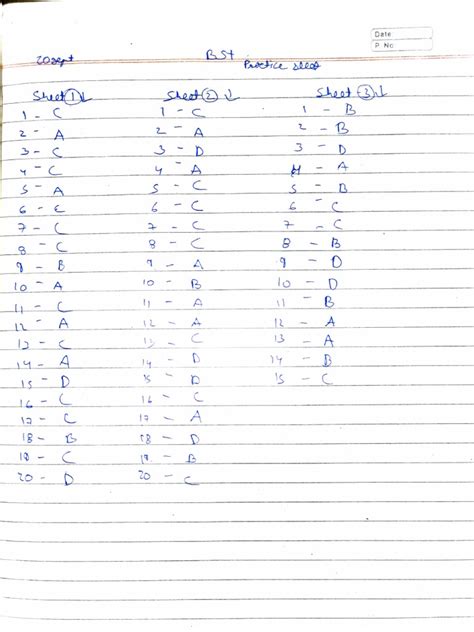 Date
P. No
20 Sept
BSt
Practice sheet
Sheet ① ↓ Sheet ② ↓ Sheet ③ ↓
1 - C 1 - C 1 - B
2 - A 2 - A 2 - B
3 - C 3 - D 3 - D
4 - C 4 - A 4 - A
5 - A 5 - C 5 - B
6 - C 6 - C 6 - C
7 - C 7 - C 7 - C
8 - C 8 - C 8 - B
9 - B 9 - A 9 - D
10 - A 10 - B 10 - D
11 - C 11 - A 11 - B
12 - A 12 - A 12 - A
13 - C 13 - C 13 - A
14 - A 14 - D 14 - B
15 - D 15 - D 15 - C
16 - C 16 - C
17 - C 17 - A
18 - B 18 - D
19 - C 19 - B
20 - D 20 - C